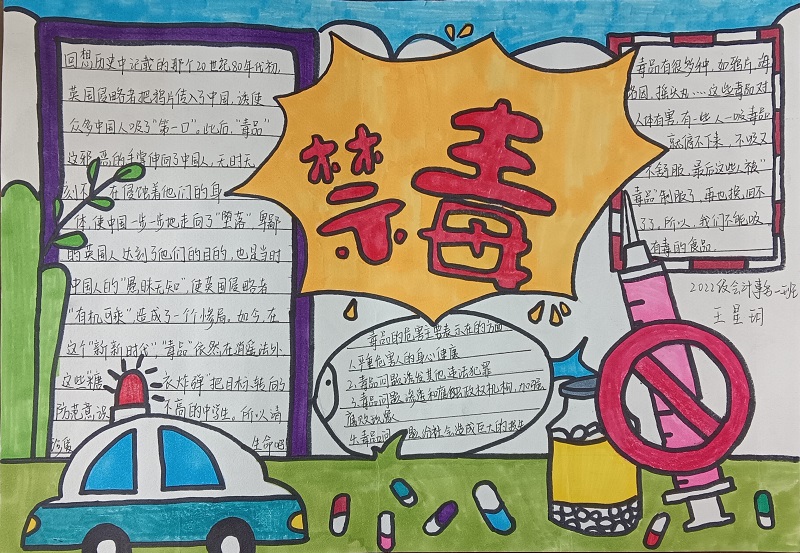 禁毒
回想历史中记载的那个20世纪80年代初,
英国侵略者把鸦片传入了中国,诱使
众多中国人吸了“第一口”。此后,“毒品”
这邪恶的手掌伸向了中国人,无时无
刻不在侵蚀着他们的身
体,使中国一步一步地走向了“堕落”卑鄙
的英国人达到了他们的目的,也是当时
中国人的“愚昧无知”使英国侵略者
“有机可乘”造成了一个惨局。如今,在
这个“新新时代”,“毒品”依然在逍遥法外
这些“糖衣炸弹”把目标转向了
防范意识不高的中学生。所以请
生命吧
毒品有很多种,如鸦片,海
洛因,摇头丸……这些毒品对
人体有害,有一些人一吸毒品
就停不下来,不吸又
不舒服,最后这些人被“
毒品”制服了,再也换回不
了了,所以,我们不能吸
有毒的食品。
2022级会计事务一班
王星玥
毒品的危害主要表示在的方面
1.严重危害人的身心健康
2.毒品问题诱发其他违法犯罪
3.毒品问题渗透和腐蚀政权机构,加强
腐败现象
4.毒品问题给社会造成巨大的损失